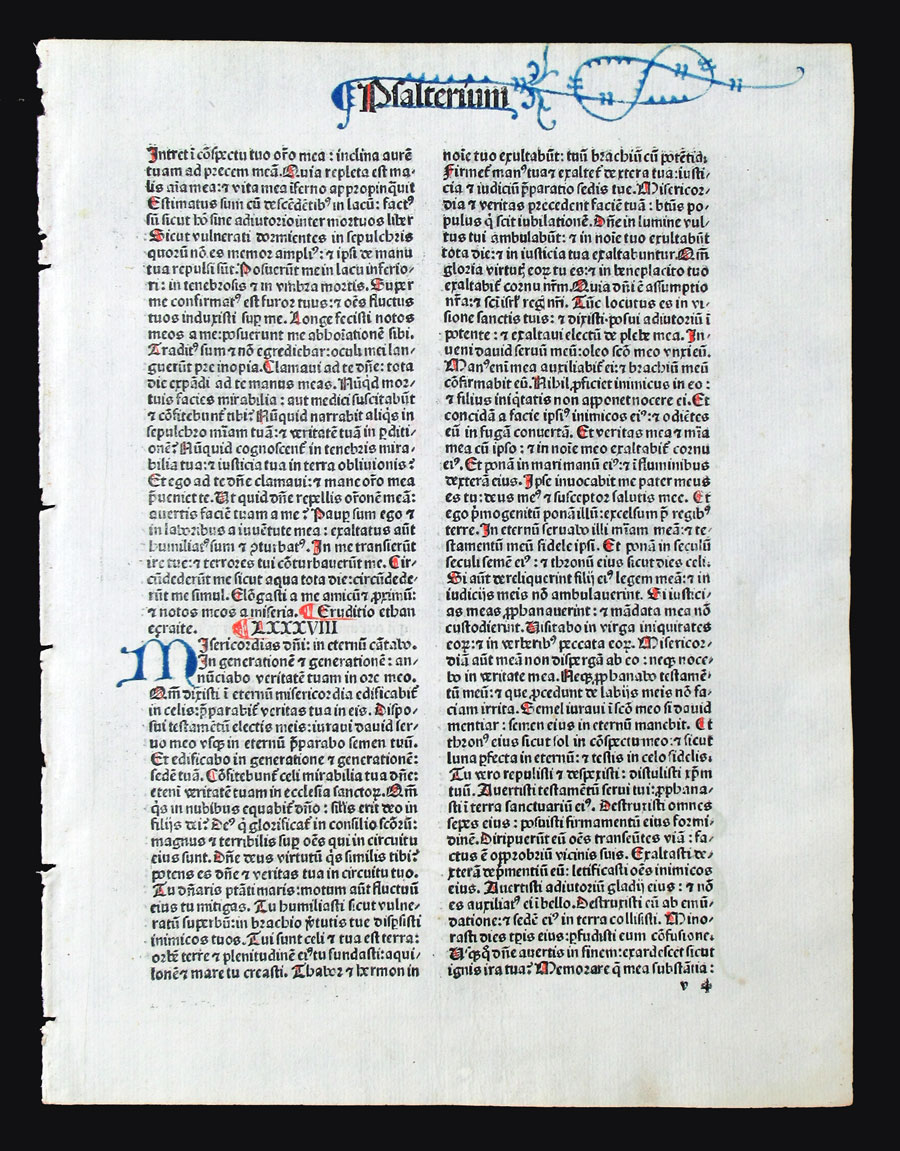 Psalterium
Intret ī cōspectu tuo orō mea : inclina aurē
tuam ad precem meā. Quia repleta est ma-
lis aīa mea: ⁊ vita mea īferno appropinquit
Estimatus sum cū descēdētibꝰ in lacū: factꝰ
sū sicut hō sine adiutorio inter mortuos liber
Sicut vulnerati dormientes in sepulchris
quorū nō es memor ampliꝰ: ⁊ ipsi de manu
tua repulsi sūt. Posuerūt me in lacu inferio-
ri: in tenebrosis ⁊ in vmbra mortis. Super
me confirmatꝰ est furor tuus: ⁊ oēs fluctus
tuos induxisti suꝑ me. Longe fecisti notos
meos a me: posuerunt me abhoīationē sibi.
Traditꝰ sum ⁊ nō egrediebar: oculi mei lan-
guerūt pre inopia. Clamaui ad te dn̄e: tota
die expādi ad te manus meas. Nūqd mor-
tuis facies mirabilia : aut medici suscitabūt
⁊ cōfitebunt᷑ tibi? Nūquid narrabit aliqͥs in
sepulchro mīam tuā: ⁊ veritatē tuā in ꝑditi-
onē? Nūquid cognoscent᷑ in tenebris mira-
bilia tua: ⁊ iusticia tua in terra obliuionis?
Et ego ad te dn̄e clamaui: ⁊ mane orō mea
p̄ueniet te. Ut quid dn̄e repellis orōnē meā:
auertis faciē tuam a me? Pauꝑ sum ego ⁊
in laboribus a iuuētute mea : exaltatus aūt
humiliatꝰ sum ⁊ ꝯturbatꝰ. In me transierūt
ire tue: ⁊ terrores tui cōturbauerūt me. Cir-
cūdederūt me sicut aqua tota die: circūdede-
rūt me simul. Elōgasti a me amicū ⁊ ꝓximū:
⁊ notos meos a miseria. ¶ Eruditio ethan
eȝraite. ¶ LXXXVIII
MIsericordias dn̄i: in eternū cātabo.
In generationē ⁊ generationē: an-
nūciabo veritatē tuam in ore meo.
Qm̄ dixisti ī eternū misericordia edificabit᷑
in celis: p̄parabit᷑ veritas tua in eis. Dispo-
sui testamētū electis meis: iuraui dauid ser-
uo meo vsqꝫ in eternū p̄parabo semen tuū.
Et edificabo in generatione ⁊ generationē:
sedē tuā. Cōfitebunt᷑ celi mirabilia tua dn̄e:
eteni veritatē tuam in ecclesia sanctoꝝ. Qm̄
qͥs in nubibus equabit᷑ dn̄o : silis erit deo in
filijs dei? Deꝰ q̇ glorificat᷑ in consilio scōrū:
magnus ⁊ terribilis suꝑ oēs qui in circuitu
eius sunt. Dn̄e deus virtutū qͥs similis tibi?
potens es dn̄e ⁊ veritas tua in circuitu tuo.
Tu dn̄aris ptāti maris: motum aūt fluctuū
eius tu mitigas. Tu humiliasti sicut vulne-
ratū superbū: in brachio v̄tutis tue disꝑsisti
inimicos tuos. Tui sunt celi ⁊ tua est terra:
orbē terre ⁊ plenitudinē eiꝰ tu fundasti: aqui-
lonē ⁊ mare tu creasti. Thabor ⁊ hermon in
noīe tuo exultabūt: tuū brachiū cū potētia.
Firmet᷑ manꝰ tua ⁊ exaltet᷑ dextera tua: iusti-
cia ⁊ iudiciū p̄paratio sedis tue. Misericor-
dia ⁊ veritas precedent faciē tuā : btūs po-
pulus q̇ scit iubilationē. Dn̄e in lumine vul-
tus tui ambulabūt: ⁊ in noīe tuo exultabūt
tota die: ⁊ in iusticia tua exaltabuntur. Qm̄
gloria virtutꝭ eoꝝ tu es: ⁊ in beneplacito tuo
exaltabit᷑ cornu nr̄m. Quia dn̄i ē assumptio
nr̄a: ⁊ scī isrl̓ regꝭ nr̄i. Tūc locutus es in vi-
sione sanctis tuis: ⁊ dixisti. posui adiutoriū ī
potente : ⁊ exaltaui electū de plebe mea. In-
ueni dauid seruū meū: oleo scō meo vnxi eū.
Manꝰ enī mea auxiliabit᷑ ei: ⁊ brachiū meū
cōfirmabit eū. Nihil ꝓficiet inimicus in eo :
⁊ filius iniqͥtatis non apponet nocere ei. Et
concidā a facie ipsiꝰ inimicos eiꝰ: ⁊ odiētes
eū in fugā conuertā. Et veritas mea ⁊ mīa
mea cū ipso: ⁊ in noīe meo exaltabit᷑ cornu
eiꝰ. Et ponā in mari manū eiꝰ: ⁊ ī fluminibus
dexterā eius. Ipse inuocabit me pater meus
es tu: deus meꝰ ⁊ susceptor salutis mee. Et
ego p̄mogenitū ponā illū: excelsum p̄ regibꝰ
terre. In eternū seruabo illi mīam meā: ⁊ te-
stamentū meū fidele ipsi. Et ponā in seculū
seculi semē eiꝰ: ⁊ thronū eius sicut dies celi.
Si aūt dereliquerint filij eiꝰ legem meā: ⁊ in
iudicijs meis nō ambulauerint. Si iustici-
as meas ꝓphanauerint: ⁊ mādata mea nō
custodierint. Uisitabo in virga iniquitates
eoꝝ: ⁊ in verberibꝰ peccata eoꝝ. Misericor-
diā aūt meā non dispergā ab eo : neqꝫ noce-
bo in veritate mea. Neqꝫ ꝓphanabo testamē-
tū meū: ⁊ que ꝓcedunt de labijs meis nō fa-
ciam irrita. Semel iuraui ī scō meo si dauid
mentiar : semen eius in eternū manebit. Et
thronꝰ eius sicut sol in cōspectu meo: ⁊ sicut
luna ꝑfecta in eternū: ⁊ testis in celo fidelis.
Tu vero repulisti ⁊ despexisti : distulisti xp̄m
tuū. Auertisti testamētū serui tui: ꝓphana-
sti ī terra sanctuariū eiꝰ. Destruxisti omnes
sepes eius : posuisti firmamentū eius formi-
dinē. Diripuerūt eū oēs transeūtes viā : fa-
ctus ē opprobriū vicinis suis. Exaltasti de-
xterā dep̄mentiū eū: letificasti oēs inimicos
eius. Auertisti adiutoriū gladij eius : ⁊ nō
es auxiliatꝰ ei ī bello. Destruxisti eū ab emū-
datione: ⁊ sedē eiꝰ in terra collisisti. Mino-
rasti dies tp̄is eius: ꝑfudisti eum cōfusione.
Usqꝫq̊ dn̄e auertis in finem: exardescet sicut
ignis ira tua? Memorare q̄ mea substātia :
v 4